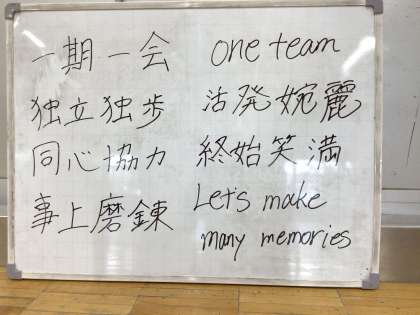 一期一会
独立独歩
同心協力
事上磨錬
one team
活発婉麗
終始笑満
Let's make
many memories